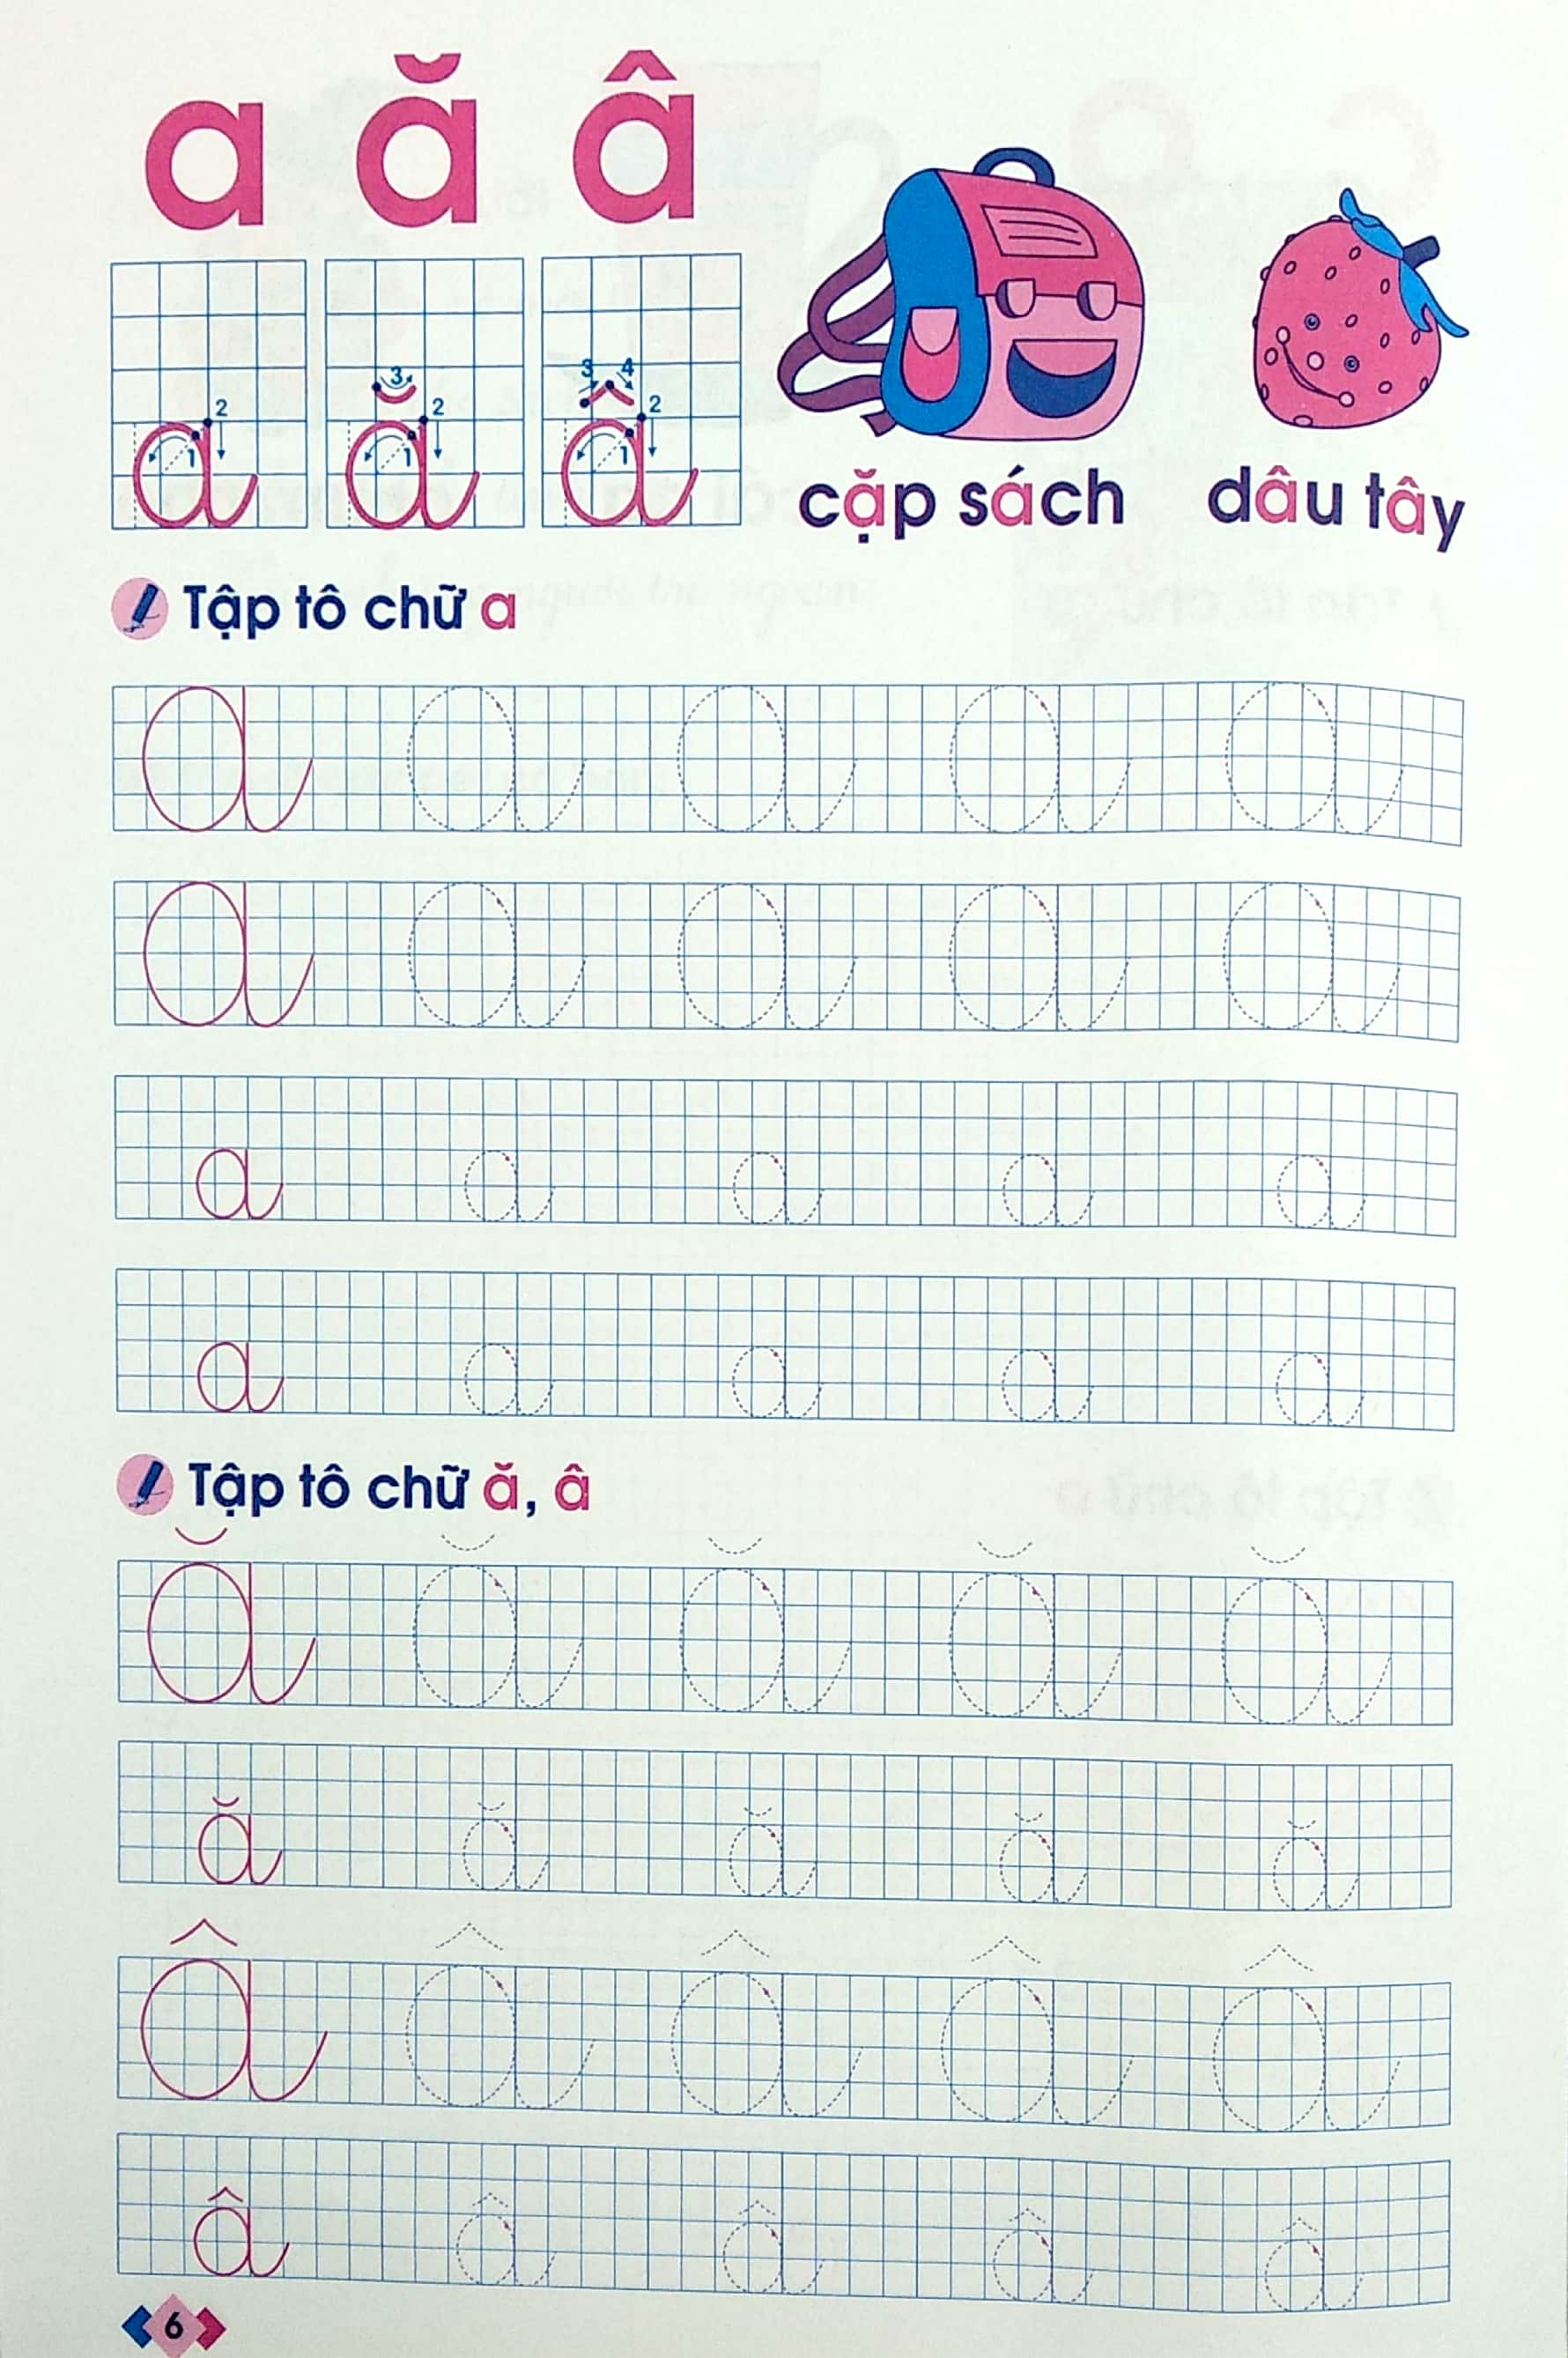 a ă â
1 2 a
1 2 3 ă
1 2 3 4 â
cặp sách dâu tây
Tập tô chữ a
a a a a a
a a a a a
a a a a a
a a a a a
Tập tô chữ ă, â
ă ă ă ă ă
ă ă ă ă ă
â â â â â
â â â â â
6